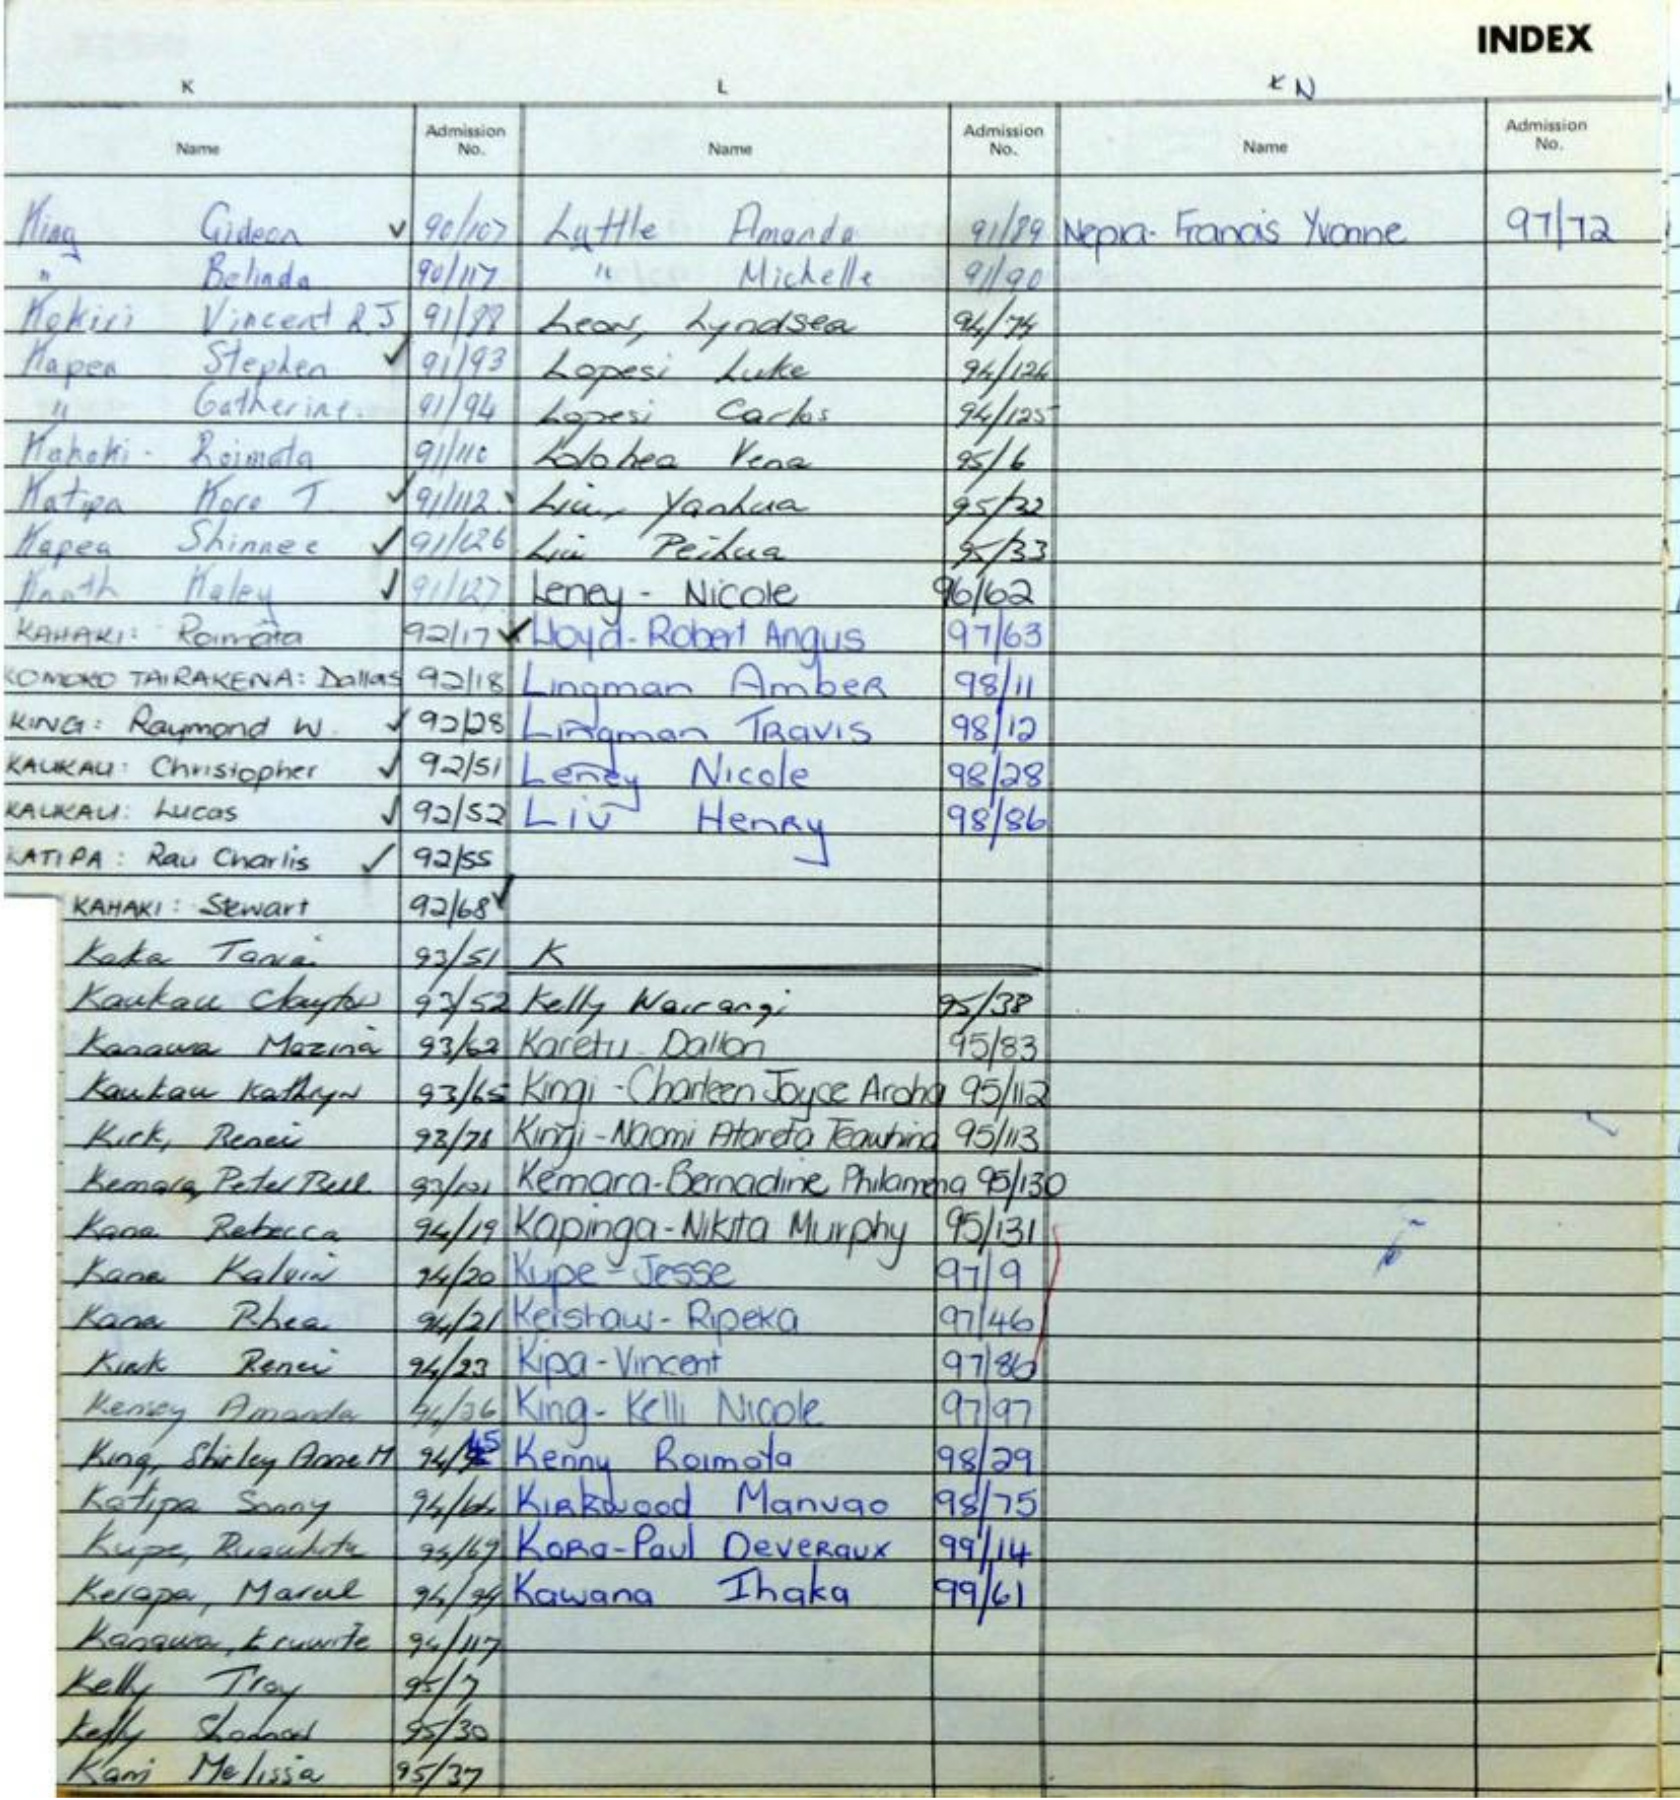 INDEX
K L K N
Name Admission No. Name Admission No. Name Admission No.
King Gideon ✓ 90/107 Lyttle Amanda 91/89 Nepia- Francis Yvonne 97/72
" Belinda 90/117 " Michelle 91/90
Kokiri Vincent R.J 91/88 Lear, Lyndsea 94/74
Kapea Stephen ✓ 91/93 Lopesi Luke 94/124
" Catherine. 91/94 Lopesi Carlos 94/125
Kahaki - Roimata 91/110 Lolohea Vena 95/6
Katipa Koro T. ✓ 91/112. Liu, Yanhua 95/32
Kapea Shinnee ✓ 91/126 Liu Peihua 95/33
Knath Kaley ✓ 91/127 Leney - Nicole 96/62
KAHAKI: Roimata 92/17 ✓ Lloyd-Robert Angus 97/63
KOMOKO TAIRAKENA: Dallas 92/18 Lingman Amber 98/11
KING: Raymond W. ✓ 92/28 Lingman Travis 98/12
KAUKAU: Christopher ✓ 92/51 Leney Nicole 98/28
KAUKAU: Lucas ✓ 92/52 Liu Henry 98/86
KATIPA: Rau Charlis ✓ 92/55
KAHAKI: Stewart 92/68 ✓
Kaka Tania 93/51 K
Kaukau Clayton 93/52 Kelly Wairangi 95/38
Kanawa Mazina 93/62 Karetu Dallon 95/83
Kaukau Kathryn 93/65 Kingi -Charleen Joyce Aroha 95/112
Kirk, Renei 93/78 Kingi-Naomi Atareta Teawhina 95/113
Kemara, Peter Bell 93/101 Kemara-Bernadine Philamena 95/130
Kana Rebecca 94/19 Kapinga-Nikita Murphy 95/131
Kana Kalvin 94/20 Kupe-Jesse 97/9
Kana Rhea 94/21 Kershaw-Ripeka 97/46
Kirk Renei 94/23 Kipa-Vincent 97/86
Kenny Amanda 94/36 King-Kelli Nicole 97/97
King, Shirley Anne M 94/45 Kenny Roimata 98/29
Katipa Sonny 94/64 Kirkwood Manuao 98/75
Kupe, 94/69 Kora-Paul Deveraux 99/14
Kerapa, 94/94 Kawana Ihaka 99/61
Kanawa, 94/117
Kelly Troy 95/7
Kelly 95/30
Kani Melissa 95/37